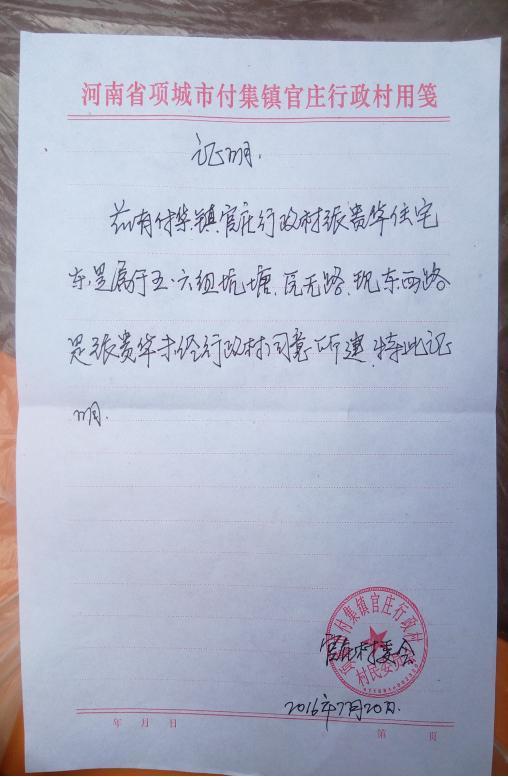 河南省项城市付集镇官庄行政村用笺
证明.
兹有付集镇官庄行政村张贵华住宅
东是属于五.六组坑塘.历无路.现东西路
是张贵华未经行政村同意所建.特此证
明.
付集镇官庄行政村
村民委员会
官庄村委会
2016年7月20日.
年 月 日
第 页